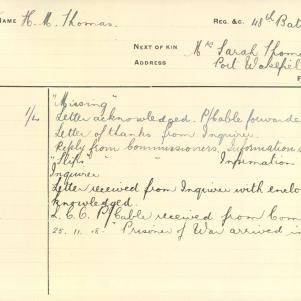 NAME H. M. Thomas. REG. &C. 48th Bat
NEXT OF KIN Mrs Sarah Thom
ADDRESS Port Wakefiel
F
"Missing"
1/4 Letter acknowledged. P/Cable forwarde
Letter of thanks from Inquirer
Reply from Commissioners, Information s
"Slip" " " Information
Inquirer
Letter received from Inquirer with enclo
knowledged.
L.C.C. P/Cable received from Com
25.11.18. "Prisoner of War arrived in